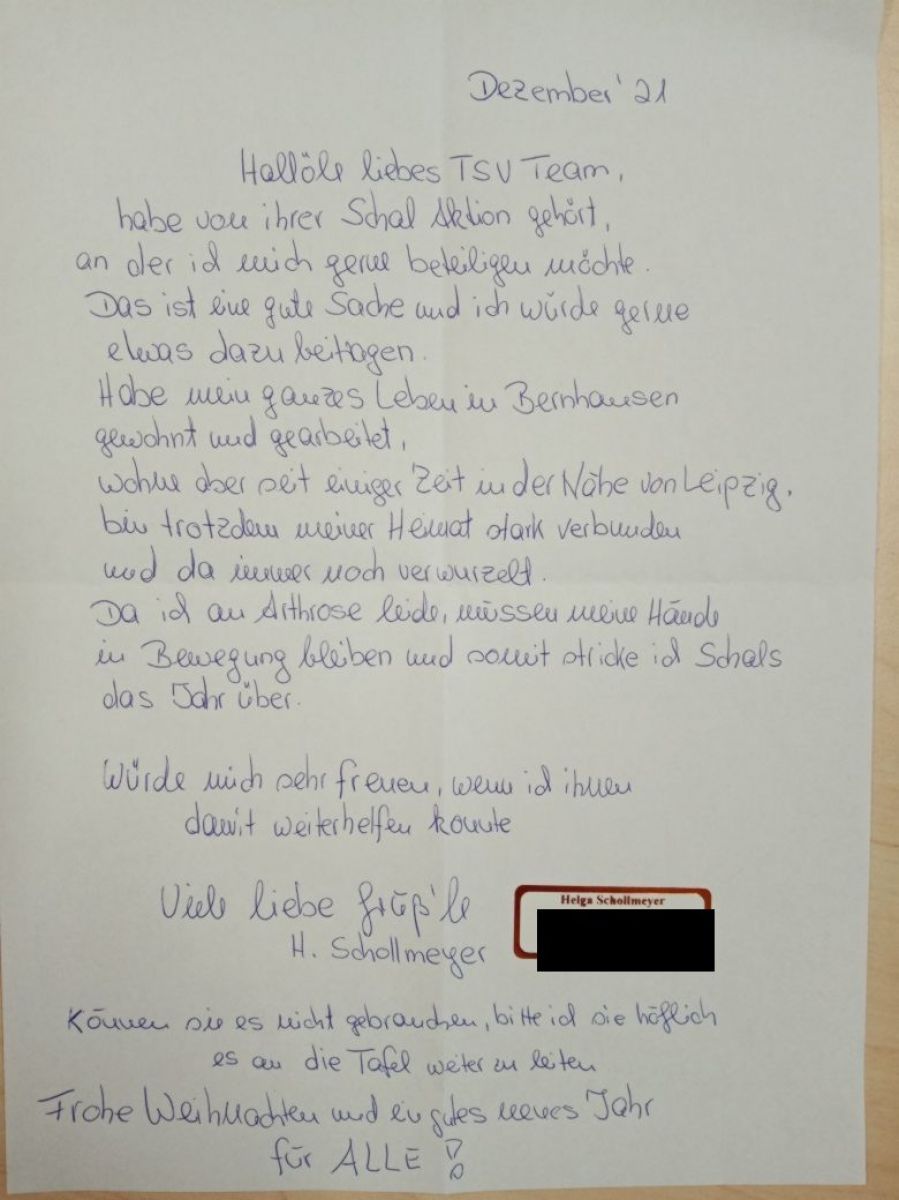 Dezember '21
Hallöle liebes TSV Team,
habe von ihrer Schal Aktion gehört,
an der ich mich gerne beteiligen möchte.
Das ist eine gute Sache und ich würde gerne
etwas dazu beitragen.
Habe mein ganzes Leben in Bernhausen
gewohnt und gearbeitet,
wohne aber seit einiger Zeit in der Nähe von Leipzig,
bin trotzdem meiner Heimat stark verbunden
und da immer noch verwurzelt.
Da ich an Arthrose leide, müssen meine Hände
in Bewegung bleiben und somit stricke ich Schals
das Jahr über.
Würde mich sehr freuen, wenn ich ihnen
damit weiterhelfen konnte
Viele liebe Grüß'le
H. Schollmeyer
Helga Schollmeyer
Können sie es nicht gebrauchen, bitte ich sie höflich
es an die Tafel weiter zu leiten
Frohe Weihnachten und ein gutes neues Jahr
für ALLE !